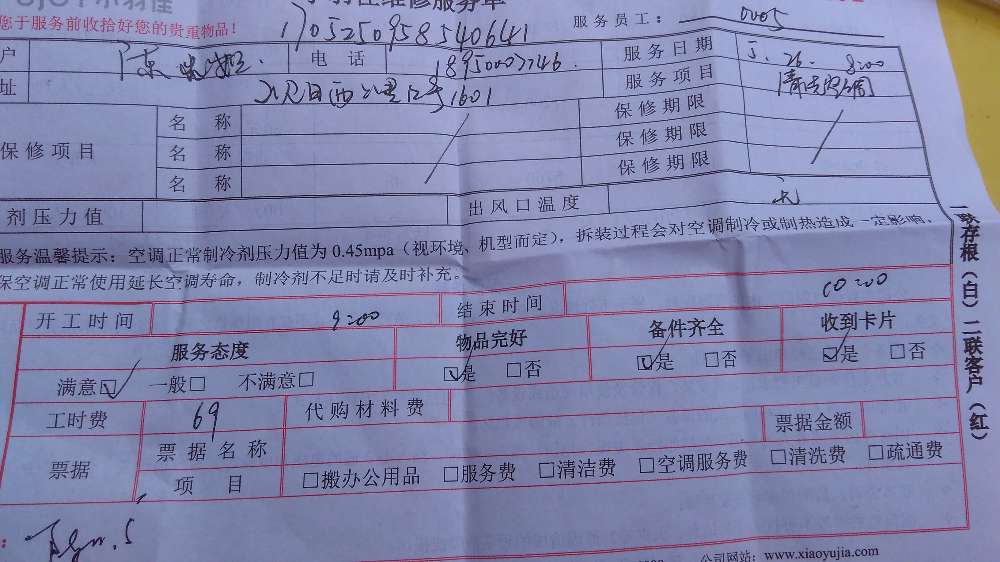 小羽佳 维修服务单
您于服务前收拾好您的贵重物品！ 17052509585406641 服务员工： 0005
户 陈 电话 18950007746. 服务日期 5.26. 8:00
址 西 里 号1601 服务项目 清洗空调
保修项目 名称 保修期限
名称 保修期限
名称 保修期限
剂压力值 出风口温度
服务温馨提示：空调正常制冷剂压力值为 0.45mpa（视环境、机型而定），拆装过程会对空调制冷或制热造成一定影响，
保空调正常使用延长空调寿命，制冷剂不足时请及时补充。
开工时间 9:00 结束时间 10:00
服务态度 物品完好 备件齐全 收到卡片
满意☑ 一般□ 不满意□ ☑是 □否 ☑是 □否 ☑是 □否
工时费 69 代购材料费
票据 票据名称 票据金额
项目 □搬办公用品 □服务费 □清洁费 □空调服务费 □清洗费 □疏通费
公司网站：www.xiaoyujia.com
一联存根（白）二联客户（红）